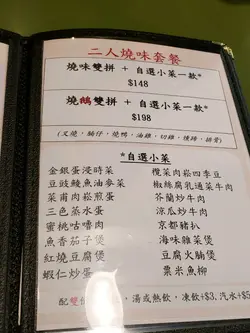 二人燒味套餐
燒味雙拼 + 自選小菜一款*
$148
燒鵝雙拼 + 自選小菜一款*
$198
(叉燒，腩仔，燒鴨，油雞，切雞，燻蹄，排骨)
*自選小菜
金銀蛋浸時菜
豆豉鯪魚油麥菜
菜甫肉崧煎蛋
三色蒸水蛋
蜜桃咕嚕肉
魚香茄子煲
紅燒豆腐煲
蝦仁炒蛋
欖菜肉崧四季豆
椒絲腐乳通菜牛肉
芥蘭炒牛肉
涼瓜炒牛肉
京都豬扒
海味雜菜煲
豆腐火腩煲
粟米魚柳
配雙 湯或熱飲，凍飲+$3，汽水+$5